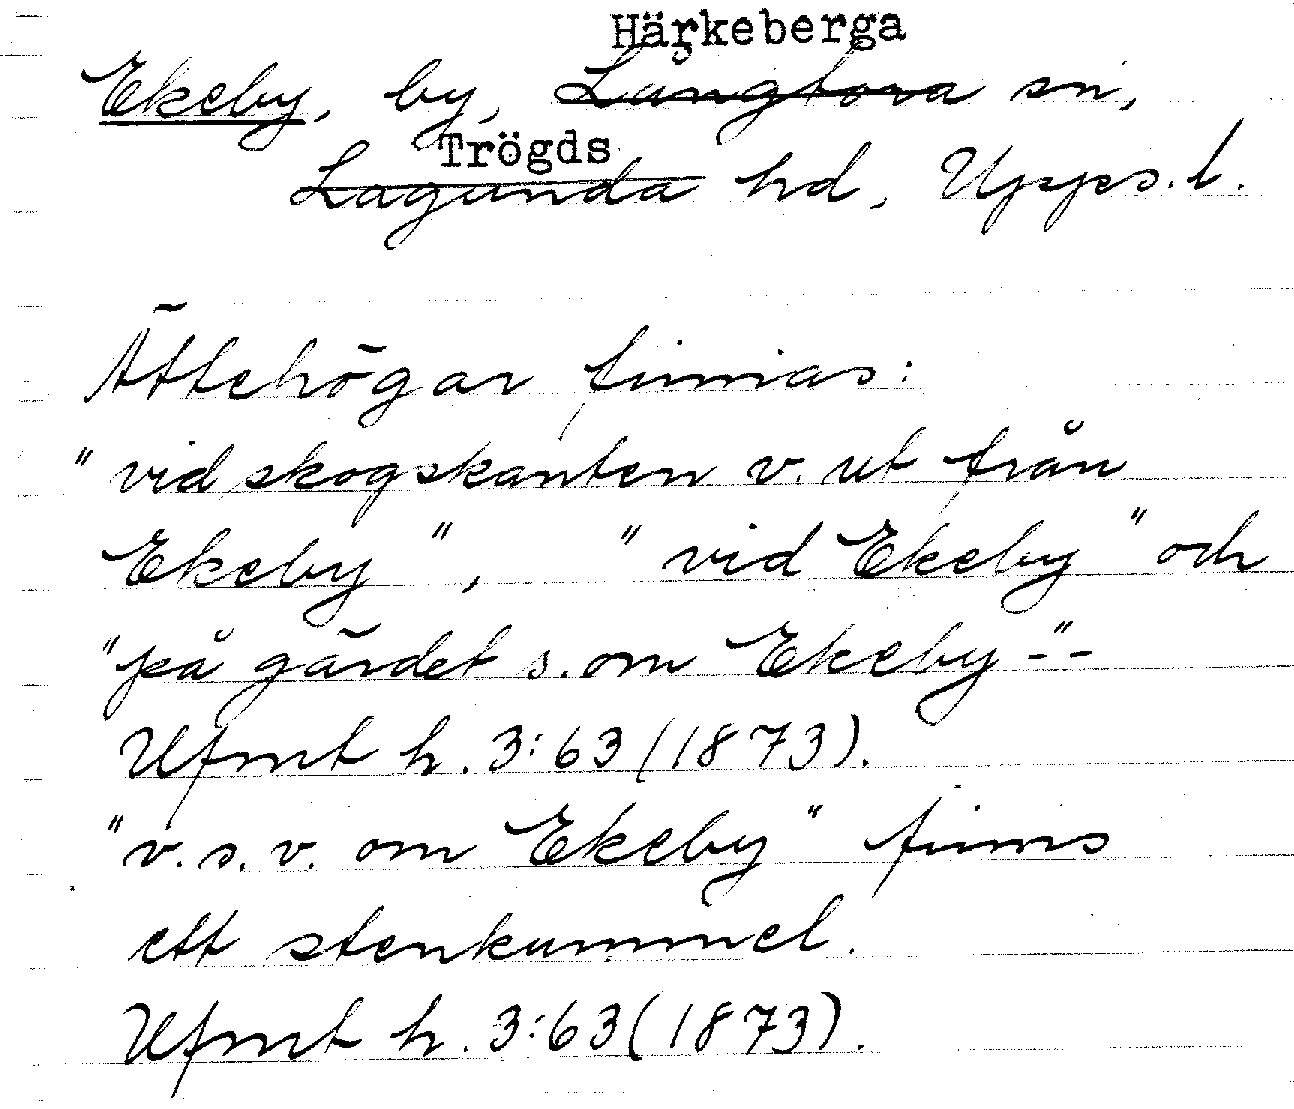 Härkeberga
Ekeby, by, Långtora sn,
Trögds
Lagunda hd, Upps. l.
Ättehögar finnas:
"vid skogskanten v. ut från
Ekeby", "vid Ekeby" och
"på gärdet s. om Ekeby -"-
Ufmt h. 3:63 (1873).
"v.s.v. om Ekeby" finns
ett stenkummel.
Ufmt h. 3:63 (1873).